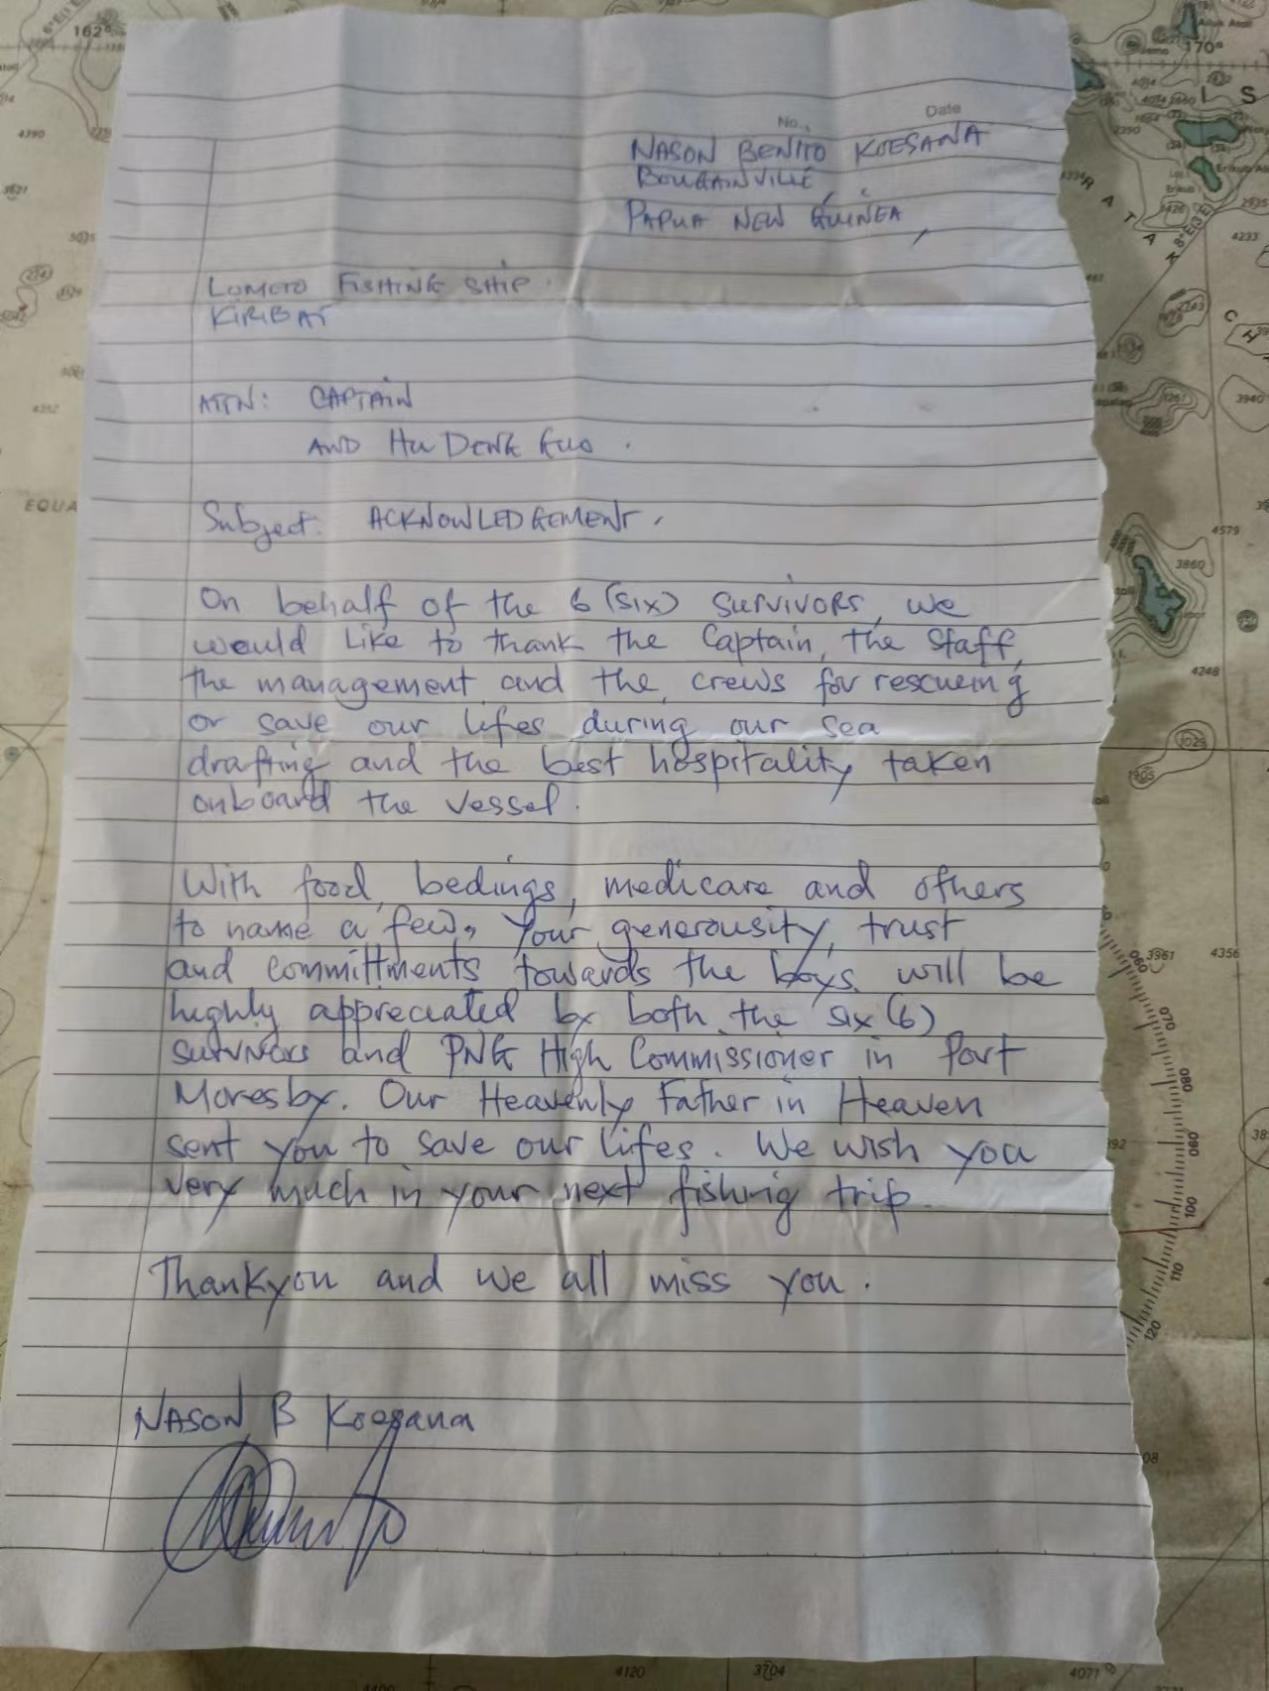 No.,
Date
NASON BENITO KOESANA
BOUGAINVILLE,
PAPUA NEW GUINEA,
LOMETO FISHING SHIP.
KIRIBAT
ATTN: CAPTAIN
AND HU DENG GUO.
Subject: ACKNOWLEDGEMENT.
On behalf of the 6 (six) survivors, we
would like to thank the Captain, the staff,
the management and the crews for rescueing
or save our lifes during our sea
drafting and the best hospitality taken
onboard the vessel.
With food, bedings, medicare and others
to name a few, Your generousity, trust
and committments towards the boys will be
highly appreciated by both the six (6)
survivors and PNG High Commissioner in Port
Moresby. Our Heavenly Father in Heaven
sent you to save our lifes. We wish you
very much in your next fishing trip.
Thankyou and we all miss you.
NASON B Koesana
162°
170°
4390
3821
5035
4352
EQUA
4233
3940
4579
3860
4248
1025
1905
3961
4356
060
070
080
090
100
110
120
4120
3704
4071